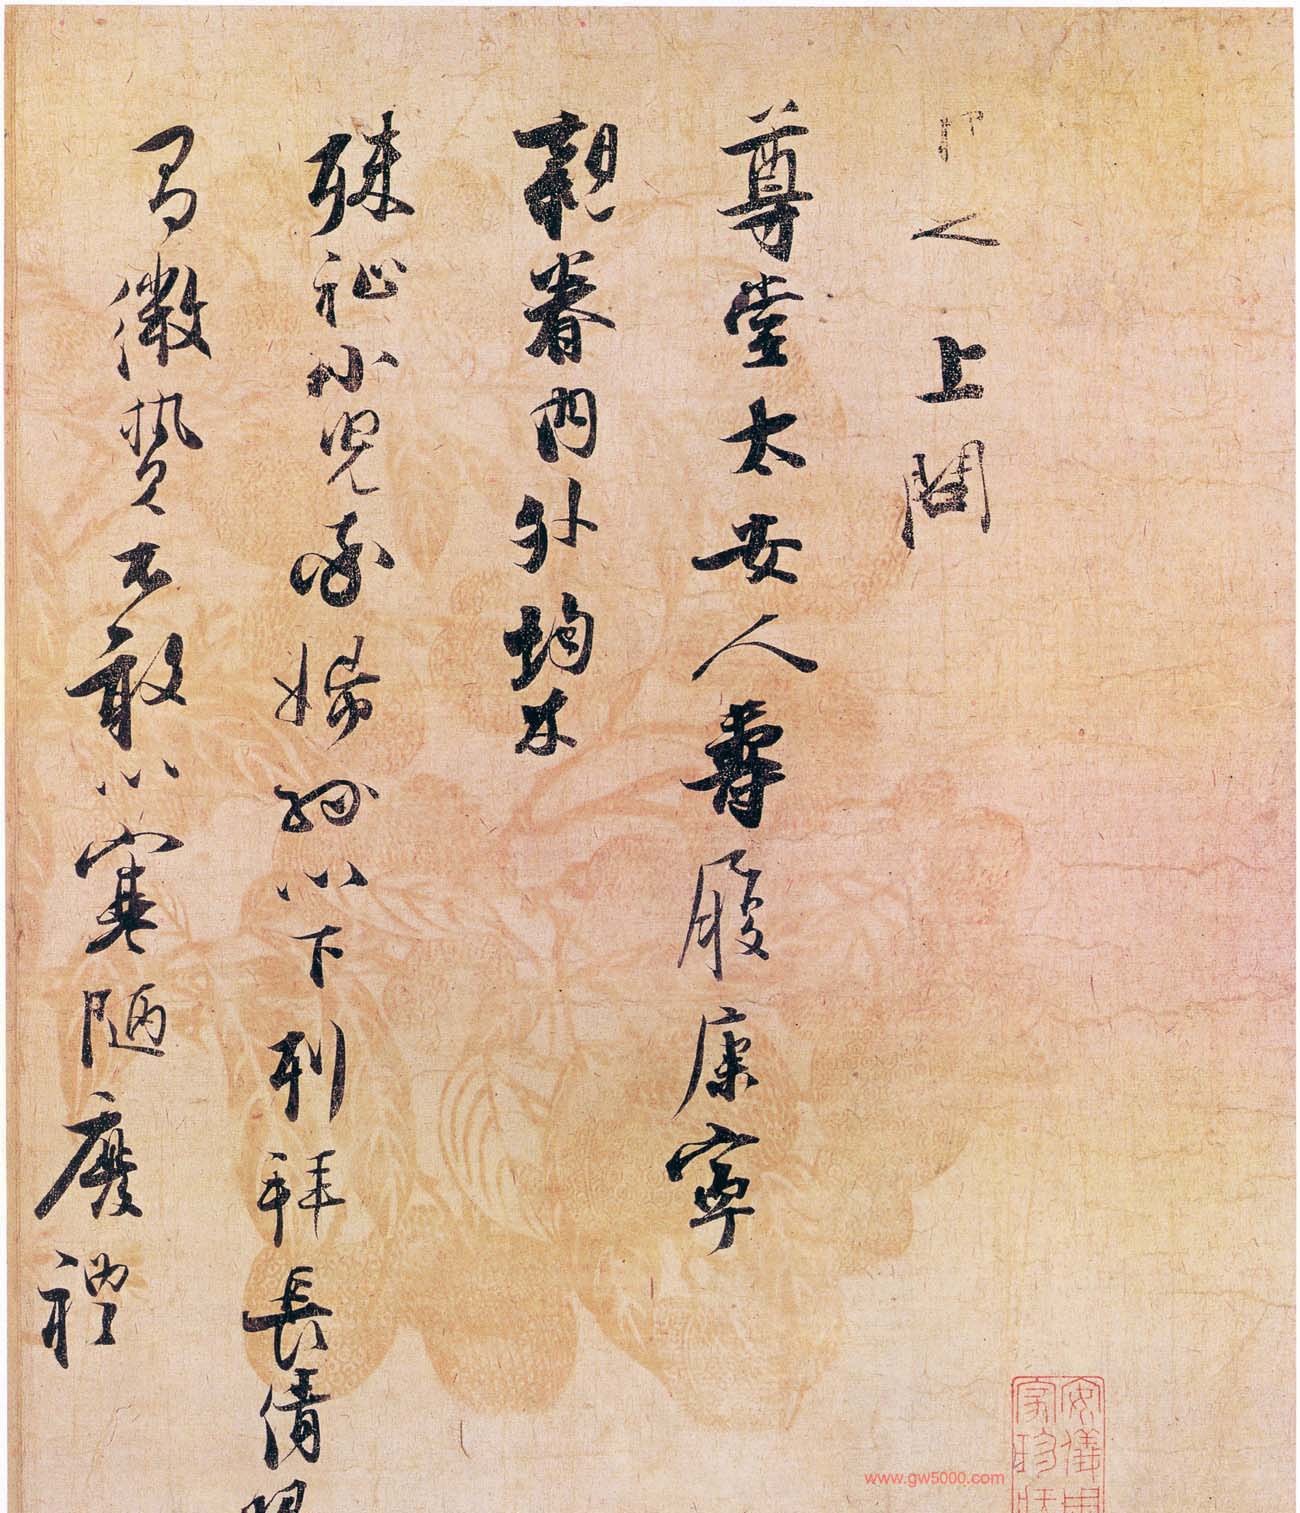 之 上問
尊堂太安人壽履康寧
親眷內外均介
殊祉小兒婦孫以下列拜長倩
微贄不敢以寒陋廢禮
安儀周
家珍藏
www.gw5000.com